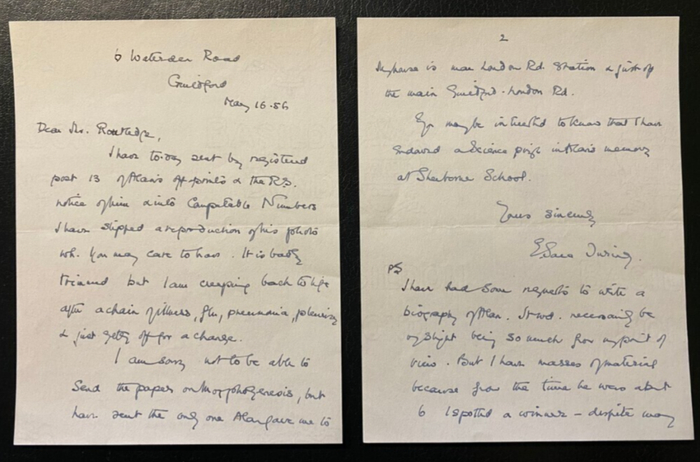 6 Waterden Road
Guildford
May 16. 56
Dear Mr. Routledge,
I have to-day sent by registered
post 13 of Alan's off prints & the R.S.
notice of him & into Computable Numbers
I have slipped a reproduction of his photo
wh. you may care to have. It is badly
trimmed but I am creeping back to life
after a chain of illness, flu, pneumonia, pleurisy
& just getting off for a change.
I am sorry not to be able to
send the paper on Morphogenesis, but
have sent the only one Alan gave me to
2
house is near London Rd. Station & just off
the main Guildford-London Rd.
You may be interested to know that I have
endowed a Science prize in Alan's memory
at Sherborne School.
Yours sincerely
E. Sara Turing.
PS
I have had some requests to write a
biography of Alan. It wd. necessarily be
being so much from my point of
view. But I have masses of material
because from the time he was about
6 I spotted a winner – despite many